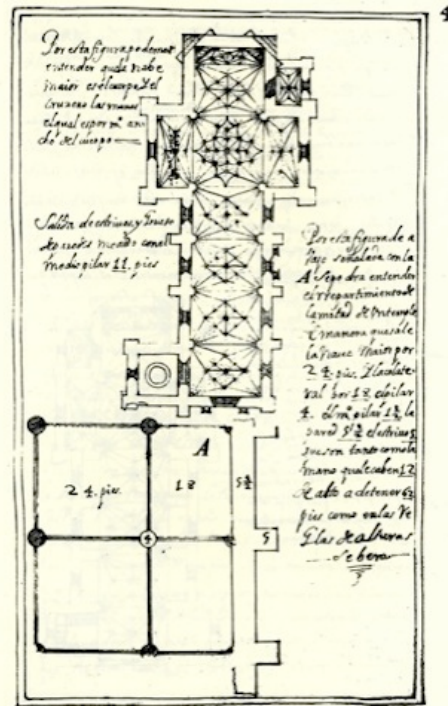 4
Por esta figura podemos
entender que la nabe
maior es el cuerpo del
cruzero las manos
el qual es por mº an
cho del cuerpo
Salida de estrivos, y grueso
de paredes medido con el
medio pilar 11. pies
Por esta figura de a
bajo señalada con la
A se podra entender
el repartimiento de
la mitad de un templo
de manera que sale
la nave maior por
24. pies, y la colate
ral por 18 el pilar
4. el mº pilar 1¾ la
pared 5¾ el estrivo 5
que son tanto como la
mano que le caben 12
de alto a de tener
pies como en las Re
glas de alturas
se bera
A
24. pies.
18
5¾
4
5